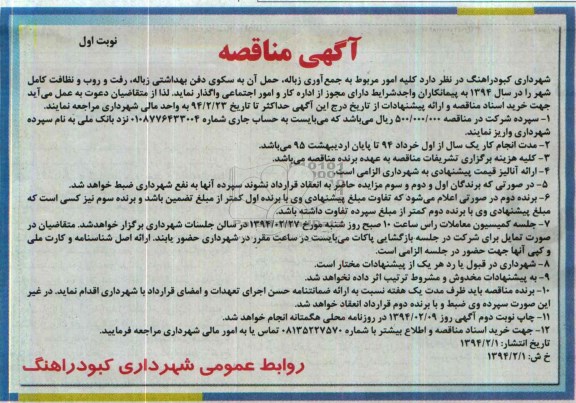 آگهی مناقصه
نوبت اول
شهرداری کبودراهنگ در نظر دارد کلیه امور مربوط به جمع آوری زباله، حمل آن به سکوی دفن بهداشتی زباله، رفت و روب و نظافت کامل
شهر را در سال ۱۳۹۴ به پیمانکاران واجدشرایط دارای مجوز از اداره کار و امور اجتماعی واگذار نماید. لذا از متقاضیان دعوت به عمل می‌آید
جهت خرید اسناد مناقصه و ارائه پیشنهادات از تاریخ درج این آگهی حداکثر تا تاریخ ۹۴/۲/۲۳ به واحد مالی شهرداری مراجعه نمایند.
۱- سپرده شرکت در مناقصه ۵۰۰/۰۰۰/۰۰۰ ریال می‌باشد که می‌بایست به حساب جاری شماره ۰۱۰۸۷۷۶۴۳۳۰۰۴ نزد بانک ملی به نام سپرده
شهرداری واریز نمایند.
۲- مدت انجام کار یک سال از اول خرداد ۹۴ تا پایان اردیبهشت ۹۵ می‌باشد.
۳- کلیه هزینه برگزاری تشریفات مناقصه به عهده برنده مناقصه می‌باشد.
۴- ارائه آنالیز قیمت پیشنهادی به شهرداری الزامی است
۵- در صورتی که برندگان اول و دوم و سوم مزایده حاضر به انعقاد قرارداد نشوند سپرده آنها به نفع شهرداری ضبط خواهد شد.
۶- برنده دوم در صورتی اعلام می‌شود که تفاوت مبلغ پیشنهادی وی با برنده اول کمتر از مبلغ تضمین باشد و برنده سوم نیز کسی است که
مبلغ پیشنهادی وی با برنده دوم کمتر از مبلغ سپرده تفاوت داشته باشد.
۷- جلسه کمیسیون معاملات راس ساعت ۱۰ صبح روز شنبه مورخ ۱۳۹۴/۰۲/۲۷ در سالن جلسات شهرداری برگزار خواهدشد. متقاضیان در
صورت تمایل برای شرکت در جلسه بازگشایی پاکات می‌بایست در ساعت مقرر در شهرداری حضور یابند. ارائه اصل شناسنامه و کارت ملی
و کپی آنها جهت حضور در جلسه الزامی است.
۸- شهرداری در قبول یا رد هر یک از پیشنهادات مختار است.
۹- به پیشنهادات مخدوش و مشروط ترتیب اثر داده نخواهد شد.
۱۰- برنده مناقصه باید ظرف مدت یک هفته نسبت به ارائه ضمانتنامه حسن اجرای تعهدات و امضای قرارداد با شهرداری اقدام نماید. در غیر
این صورت سپرده وی ضبط و با برنده دوم قرارداد انعقاد خواهد شد.
۱۱- چاپ نوبت دوم آگهی روز ۱۳۹۴/۰۲/۰۹ در روزنامه محلی هگمتانه انجام خواهد شد.
۱۲- جهت خرید اسناد مناقصه و اطلاع بیشتر با شماره ۰۸۱۳۵۲۲۷۵۷۰ تماس یا به امور مالی شهرداری مراجعه فرمایید.
تاریخ انتشار: ۱۳۹۴/۲/۱
خ ش: ۱۳۹۴/۲/۱
روابط عمومی شهرداری کبودراهنگ